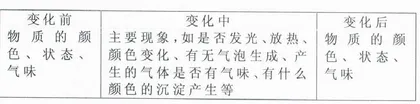 变化前
物质的颜
色、状态、
气味
变化中
主要现象,如是否发光、放热、
颜色变化、有无气泡生成、产
生的气体是否有气味、有什么
颜色的沉淀产生等
变化后
物质的颜
色、状态、
气味